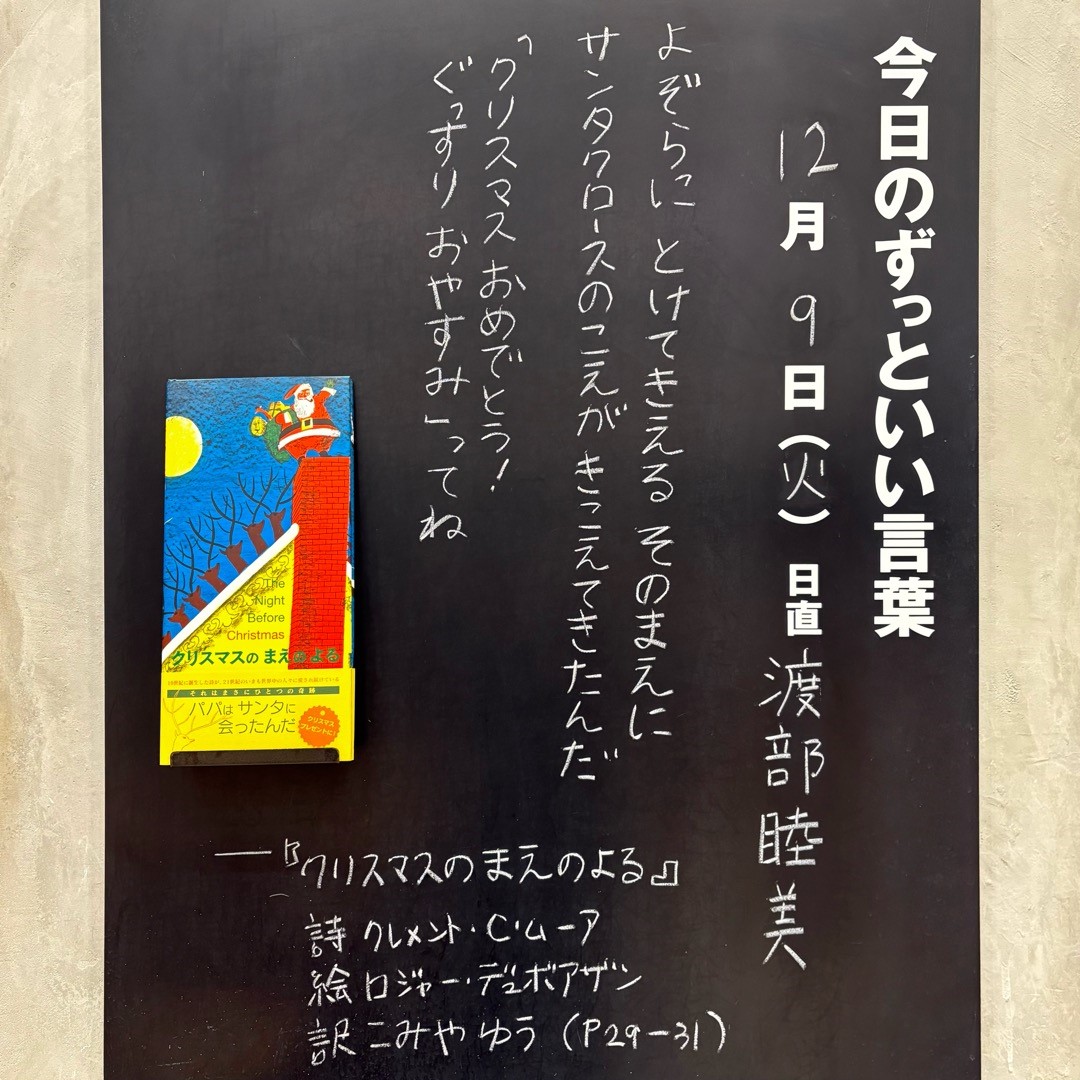 今日のずっといい言葉
12月9日(火) 日直 渡部睦美
よぞらに とけてきえる そのまえに
サンタクロースのこえが きこえてきたんだ
「クリスマス おめでとう!
ぐっすり おやすみ」ってね
The
Night
Before
Christmas
クリスマスの まえのよる
それはまさにひとつの奇跡
パパは サンタに
会ったんだ
クリスマス
プレゼントに!
―『クリスマスのまえのよる』
詩 クレメント・C・ムーア
絵 ロジャー・デュボアザン
訳 こみやゆう (P29-31)